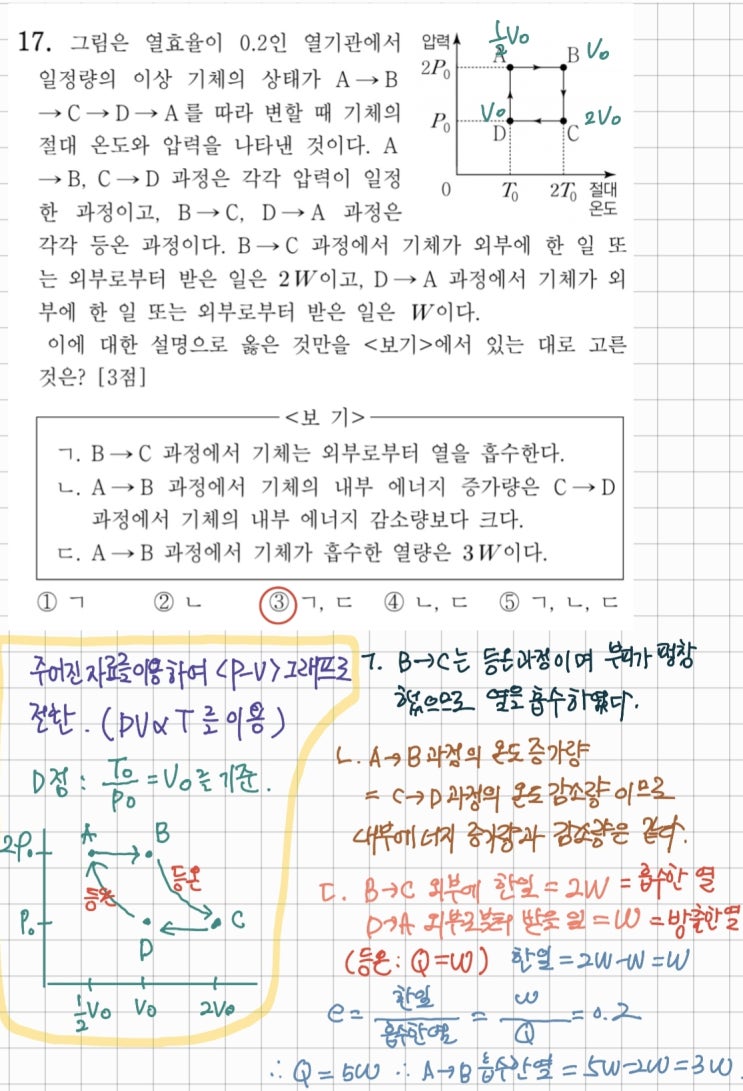 17. 그림은 열효율이 0.2인 열기관에서
일정량의 이상 기체의 상태가 A→B
→C→D→A를 따라 변할 때 기체의
절대 온도와 압력을 나타낸 것이다. A
→B, C→D 과정은 각각 압력이 일정
한 과정이고, B→C, D→A 과정은
각각 등온 과정이다. B→C 과정에서 기체가 외부에 한 일 또
는 외부로부터 받은 일은 2W이고, D→A 과정에서 기체가 외
부에 한 일 또는 외부로부터 받은 일은 W이다.
이에 대한 설명으로 옳은 것만을 <보기>에서 있는 대로 고른
것은? [3점]
압력
½V₀
A B V₀
2P₀
P₀ V₀ D C 2V₀
0 T₀ 2T₀ 절대
온도
<보 기>
ㄱ. B→C 과정에서 기체는 외부로부터 열을 흡수한다.
ㄴ. A→B 과정에서 기체의 내부 에너지 증가량은 C→D
과정에서 기체의 내부 에너지 감소량보다 크다.
ㄷ. A→B 과정에서 기체가 흡수한 열량은 3W이다.
① ㄱ ② ㄴ ③ ㄱ, ㄷ ④ ㄴ, ㄷ ⑤ ㄱ, ㄴ, ㄷ
주어진 자료를 이용하여 <P-V> 그래프로
전환. (PV∝T를 이용)
D점 : T₀/P₀ = V₀를 기준.
A B
2P₀
등온 등온
P₀ D C
½V₀ V₀ 2V₀
ㄱ. B→C는 등온과정이며 부피가 팽창
했으므로 열을 흡수하였다.
ㄴ. A→B과정의 온도 증가량
= C→D과정의 온도 감소량 이므로
내부에너지 증가량과 감소량은 같다.
ㄷ. B→C 외부에 한일 = 2W = 흡수한 열
D→A 외부로부터 받은 일 = W = 방출한열
(등온 : Q=W) 한일 = 2W-W = W
e = 한일/흡수한열 = W/Q = 0.2
∴ Q = 5W ∴ A→B 흡수한열 = 5W-2W = 3W.